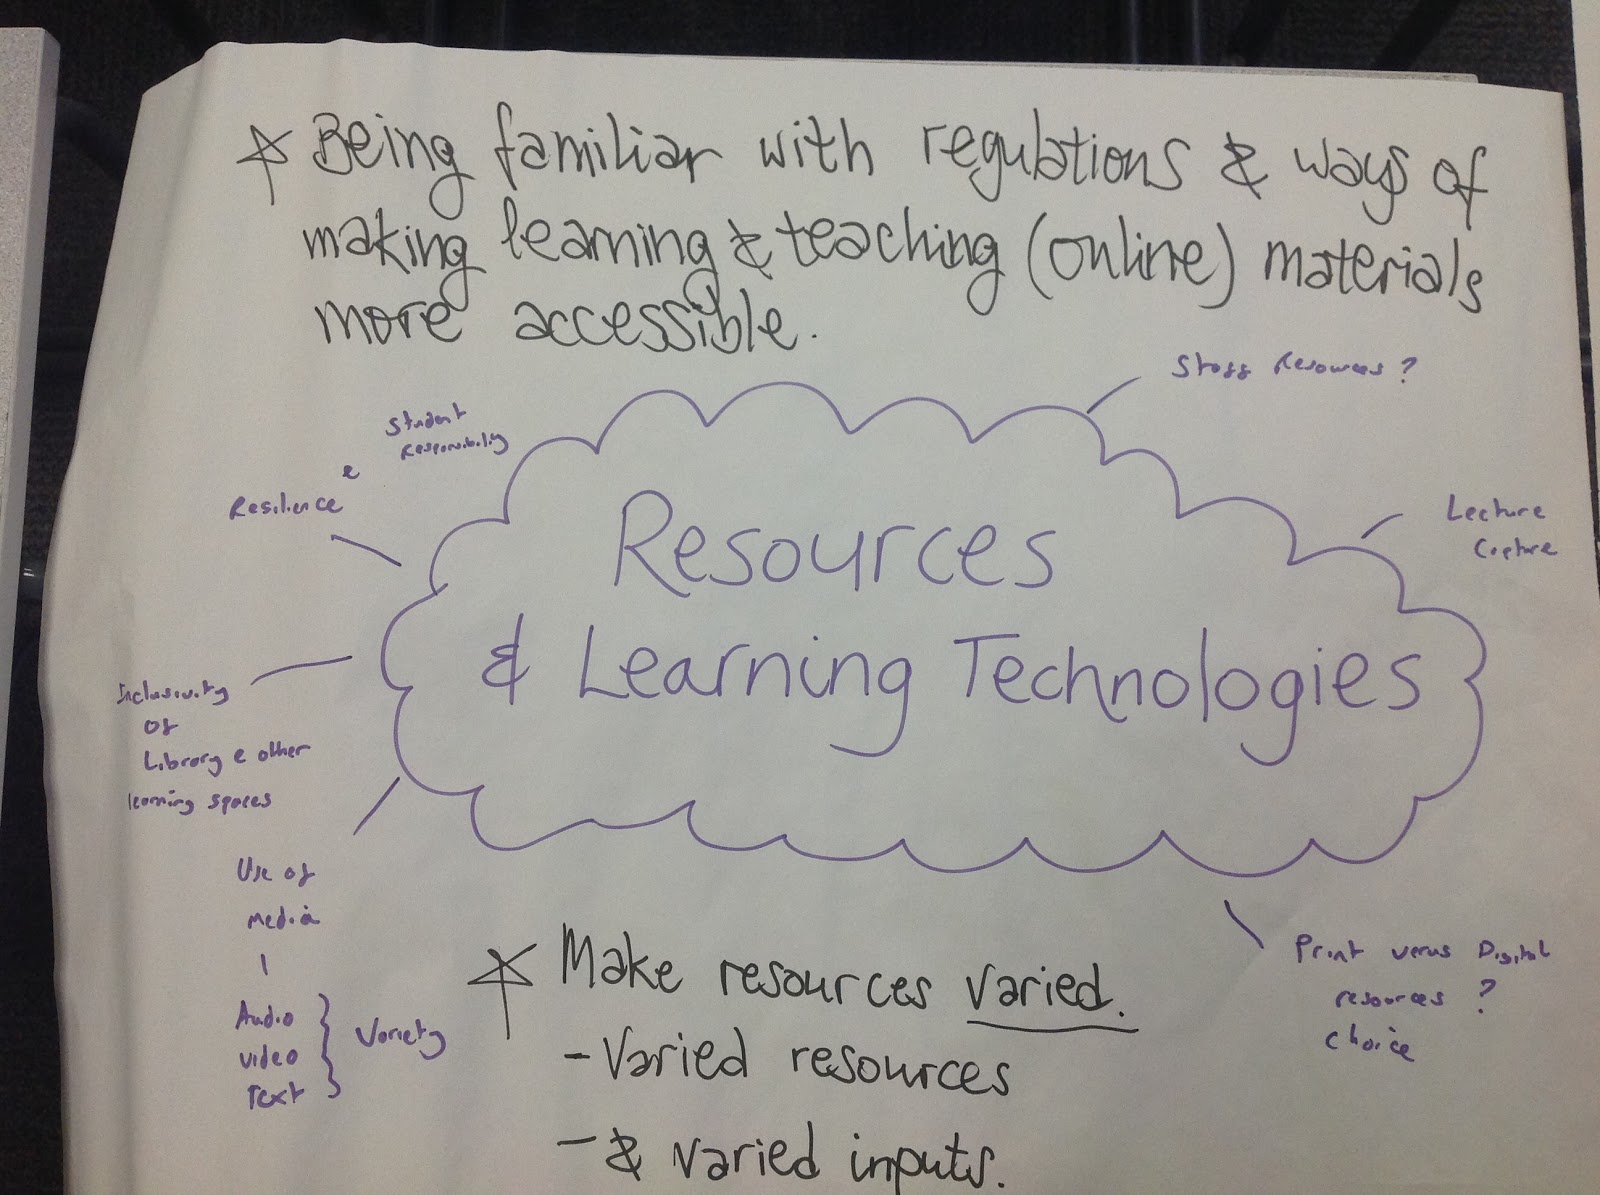 ☆ Being familiar with regulations & ways of
making learning & teaching (online) materials
more accessible.
Staff Resources?
Student
Responsibility
e
Resilience
Lecture
Capture
Resources
& Learning Technologies
Inclusivity
of
Library e other
learning spaces
Use of
media
Audio
video
Text
Variety
Print versus Digital
resources ?
choice
☆ Make resources varied.
- Varied resources
- & varied inputs.